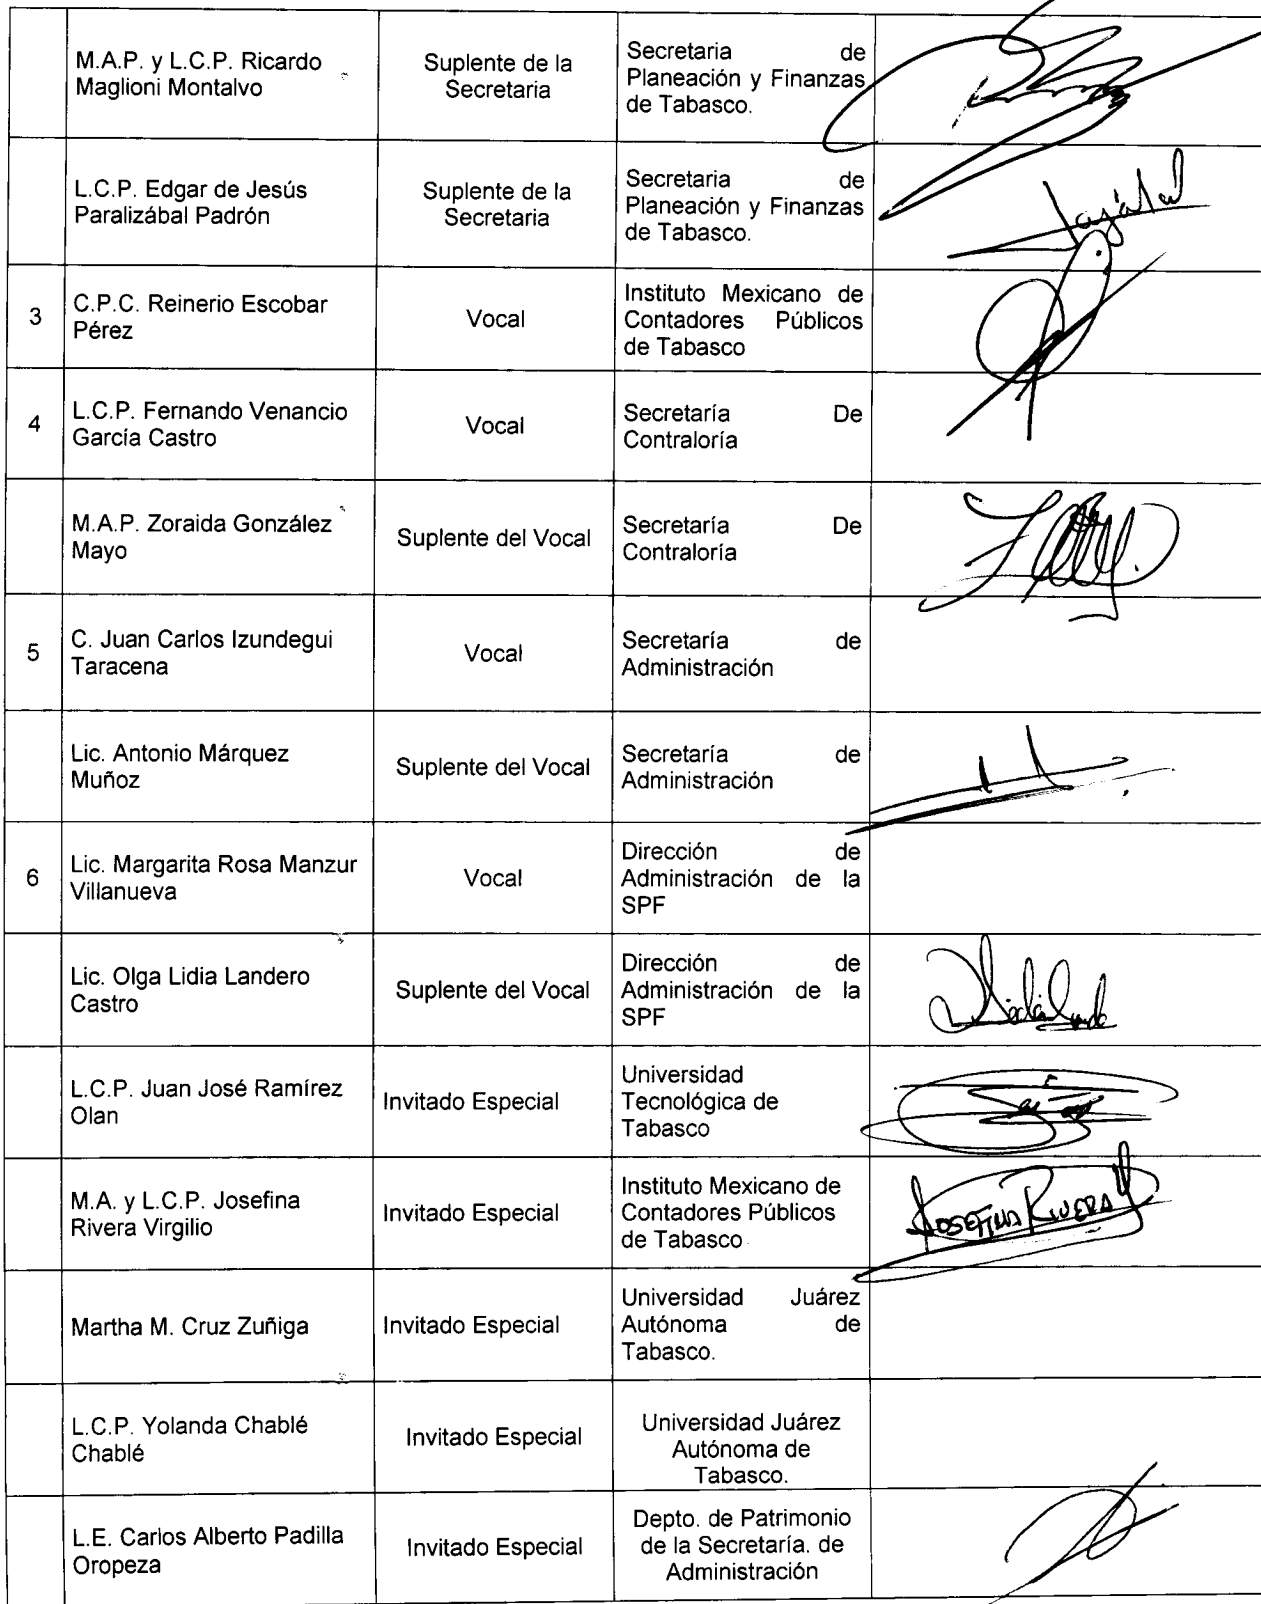 M.A.P. y L.C.P. Ricardo
Maglioni Montalvo
Suplente de la
Secretaria
Secretaria de
Planeación y Finanzas
de Tabasco.
L.C.P. Edgar de Jesús
Paralizábal Padrón
Suplente de la
Secretaria
Secretaria de
Planeación y Finanzas
de Tabasco.
3
C.P.C. Reinerio Escobar
Pérez
Vocal
Instituto Mexicano de
Contadores Públicos
de Tabasco
4
L.C.P. Fernando Venancio
García Castro
Vocal
Secretaría De
Contraloría
M.A.P. Zoraida González
Mayo
Suplente del Vocal
Secretaría De
Contraloría
5
C. Juan Carlos Izundegui
Taracena
Vocal
Secretaría de
Administración
Lic. Antonio Márquez
Muñoz
Suplente del Vocal
Secretaría de
Administración
6
Lic. Margarita Rosa Manzur
Villanueva
Vocal
Dirección de
Administración de la
SPF
Lic. Olga Lidia Landero
Castro
Suplente del Vocal
Dirección de
Administración de la
SPF
L.C.P. Juan José Ramírez
Olan
Invitado Especial
Universidad
Tecnológica de
Tabasco
M.A. y L.C.P. Josefina
Rivera Virgilio
Invitado Especial
Instituto Mexicano de
Contadores Públicos
de Tabasco
JOSEFINA RIVERA
Martha M. Cruz Zuñiga
Invitado Especial
Universidad Juárez
Autónoma de
Tabasco.
L.C.P. Yolanda Chablé
Chablé
Invitado Especial
Universidad Juárez
Autónoma de
Tabasco.
L.E. Carlos Alberto Padilla
Oropeza
Invitado Especial
Depto. de Patrimonio
de la Secretaría. de
Administración